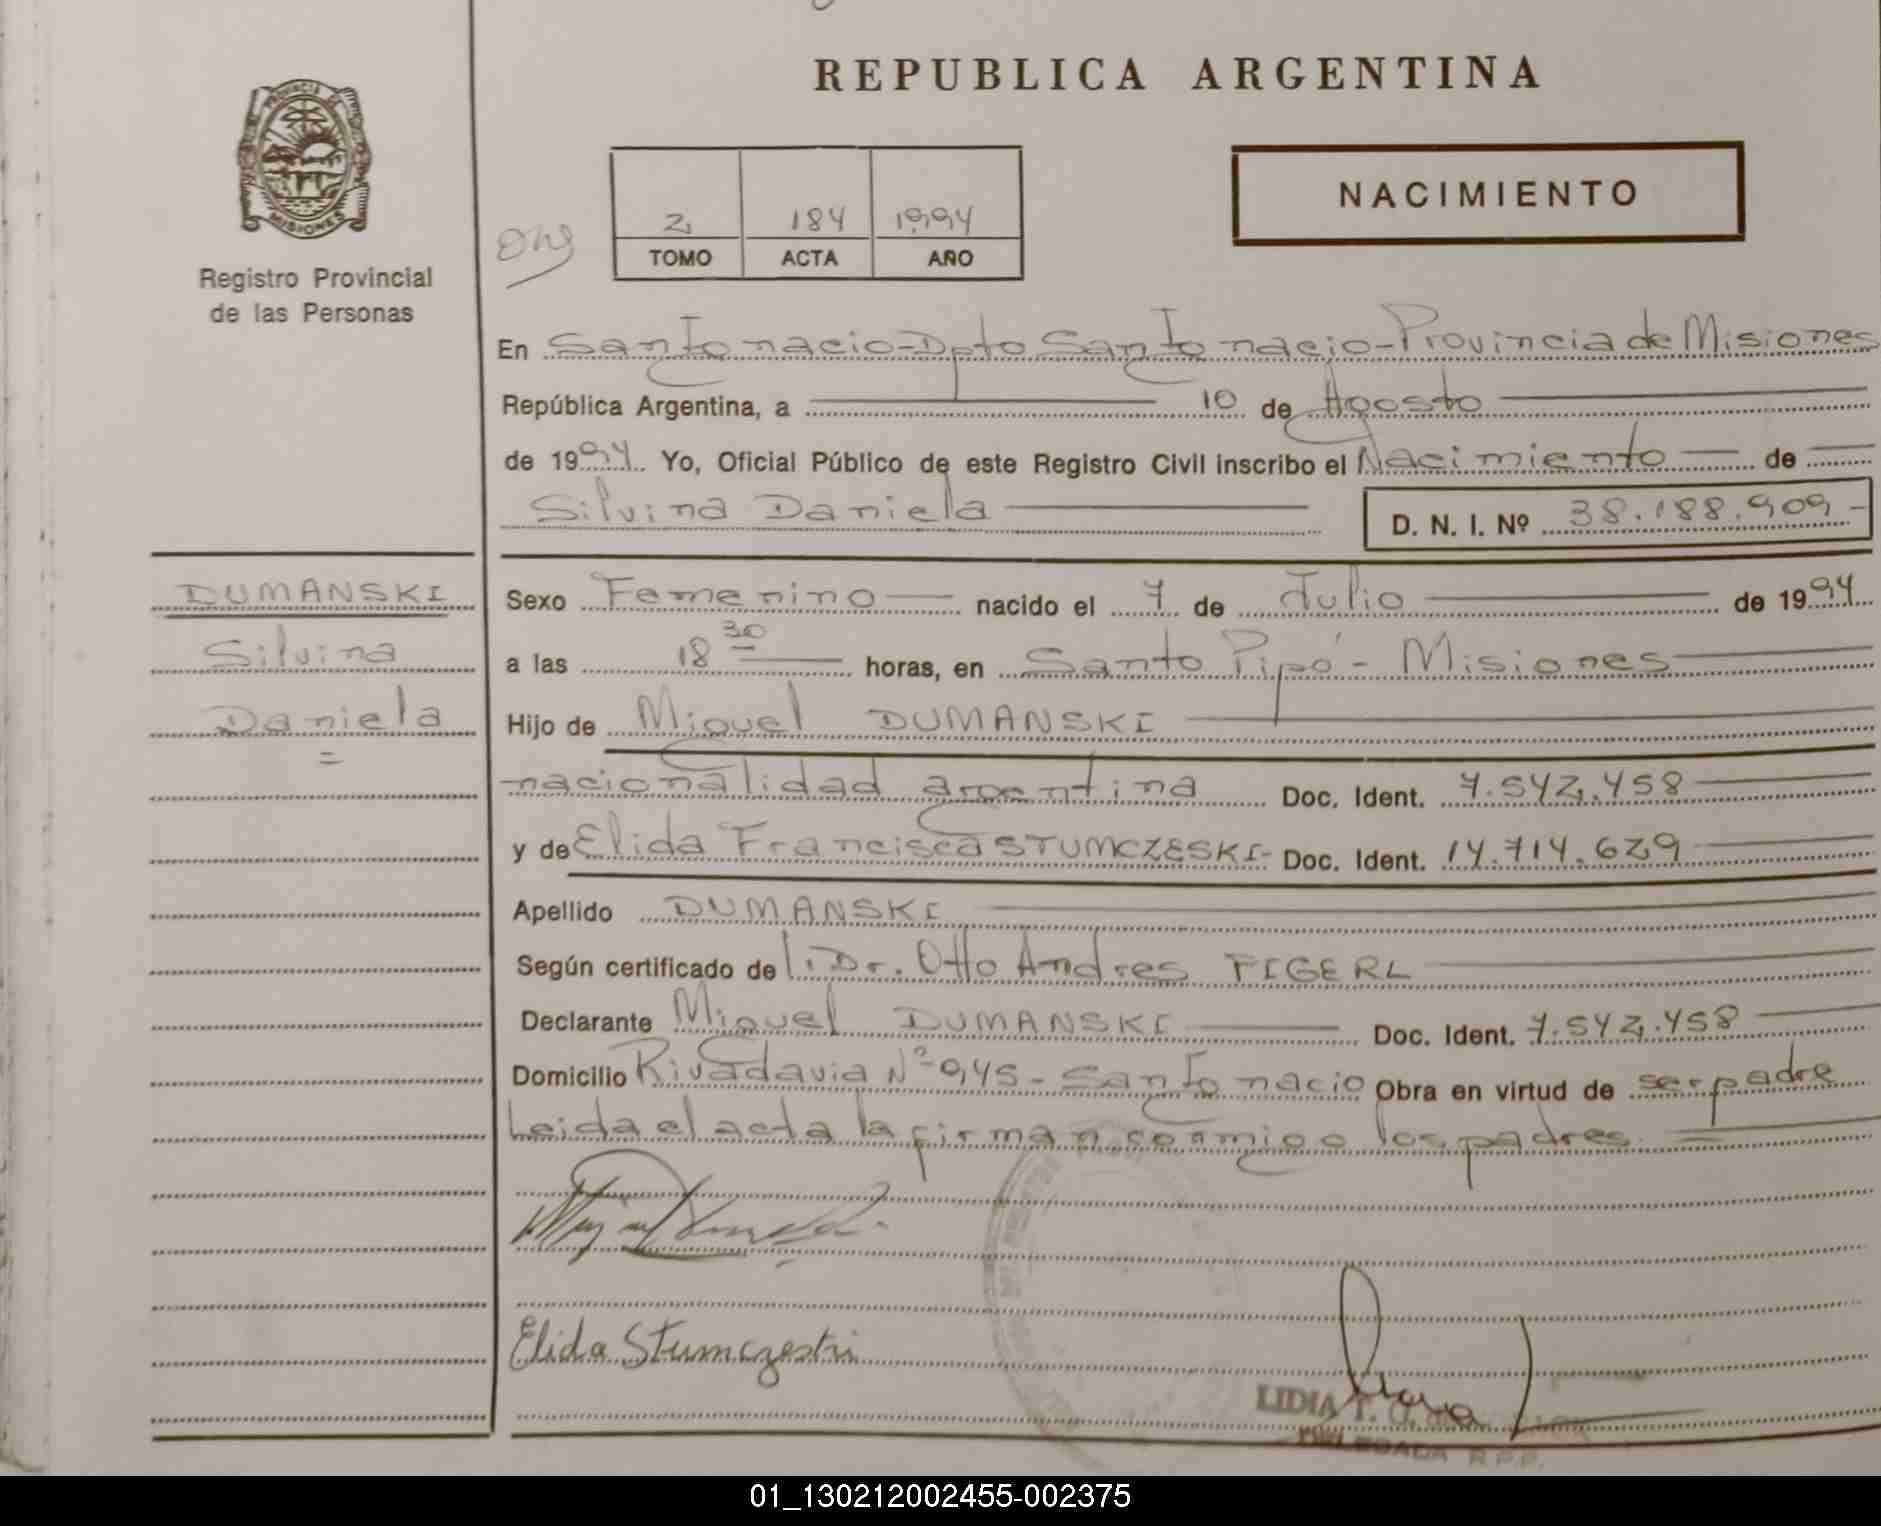 REPUBLICA ARGENTINA
PROVINCIA DE
MISIONES
Registro Provincial
de las Personas
2 184 1994
TOMO ACTA AÑO
NACIMIENTO
En San Ignacio - Dpto San Ignacio - Provincia de Misiones
República Argentina, a 10 de Agosto
de 1994 Yo, Oficial Público de este Registro Civil inscribo el Nacimiento de
Silvina Daniela D. N. I. Nº 38.188.909-
DUMANSKI
Silvina
Daniela
=
Sexo Femenino nacido el 7 de Julio de 1994
a las 18 30 horas, en Santo Pipó - Misiones
Hijo de Miguel DUMANSKI
nacionalidad argentina Doc. Ident. 7.542.458
y de Elida Francisca STUMCZESKI- Doc. Ident. 14.714.629
Apellido DUMANSKI
Según certificado de l. Dr. Otto Andres FIGERL
Declarante Miguel DUMANSKI Doc. Ident. 7.542.458
Domicilio Rivadavia Nº 945 - San Ignacio Obra en virtud de ser padre
Leida el acta la firman conmigo los padres.
Elida Stumczeski
LIDIA T.
R.P.P.
01_130212002455-002375